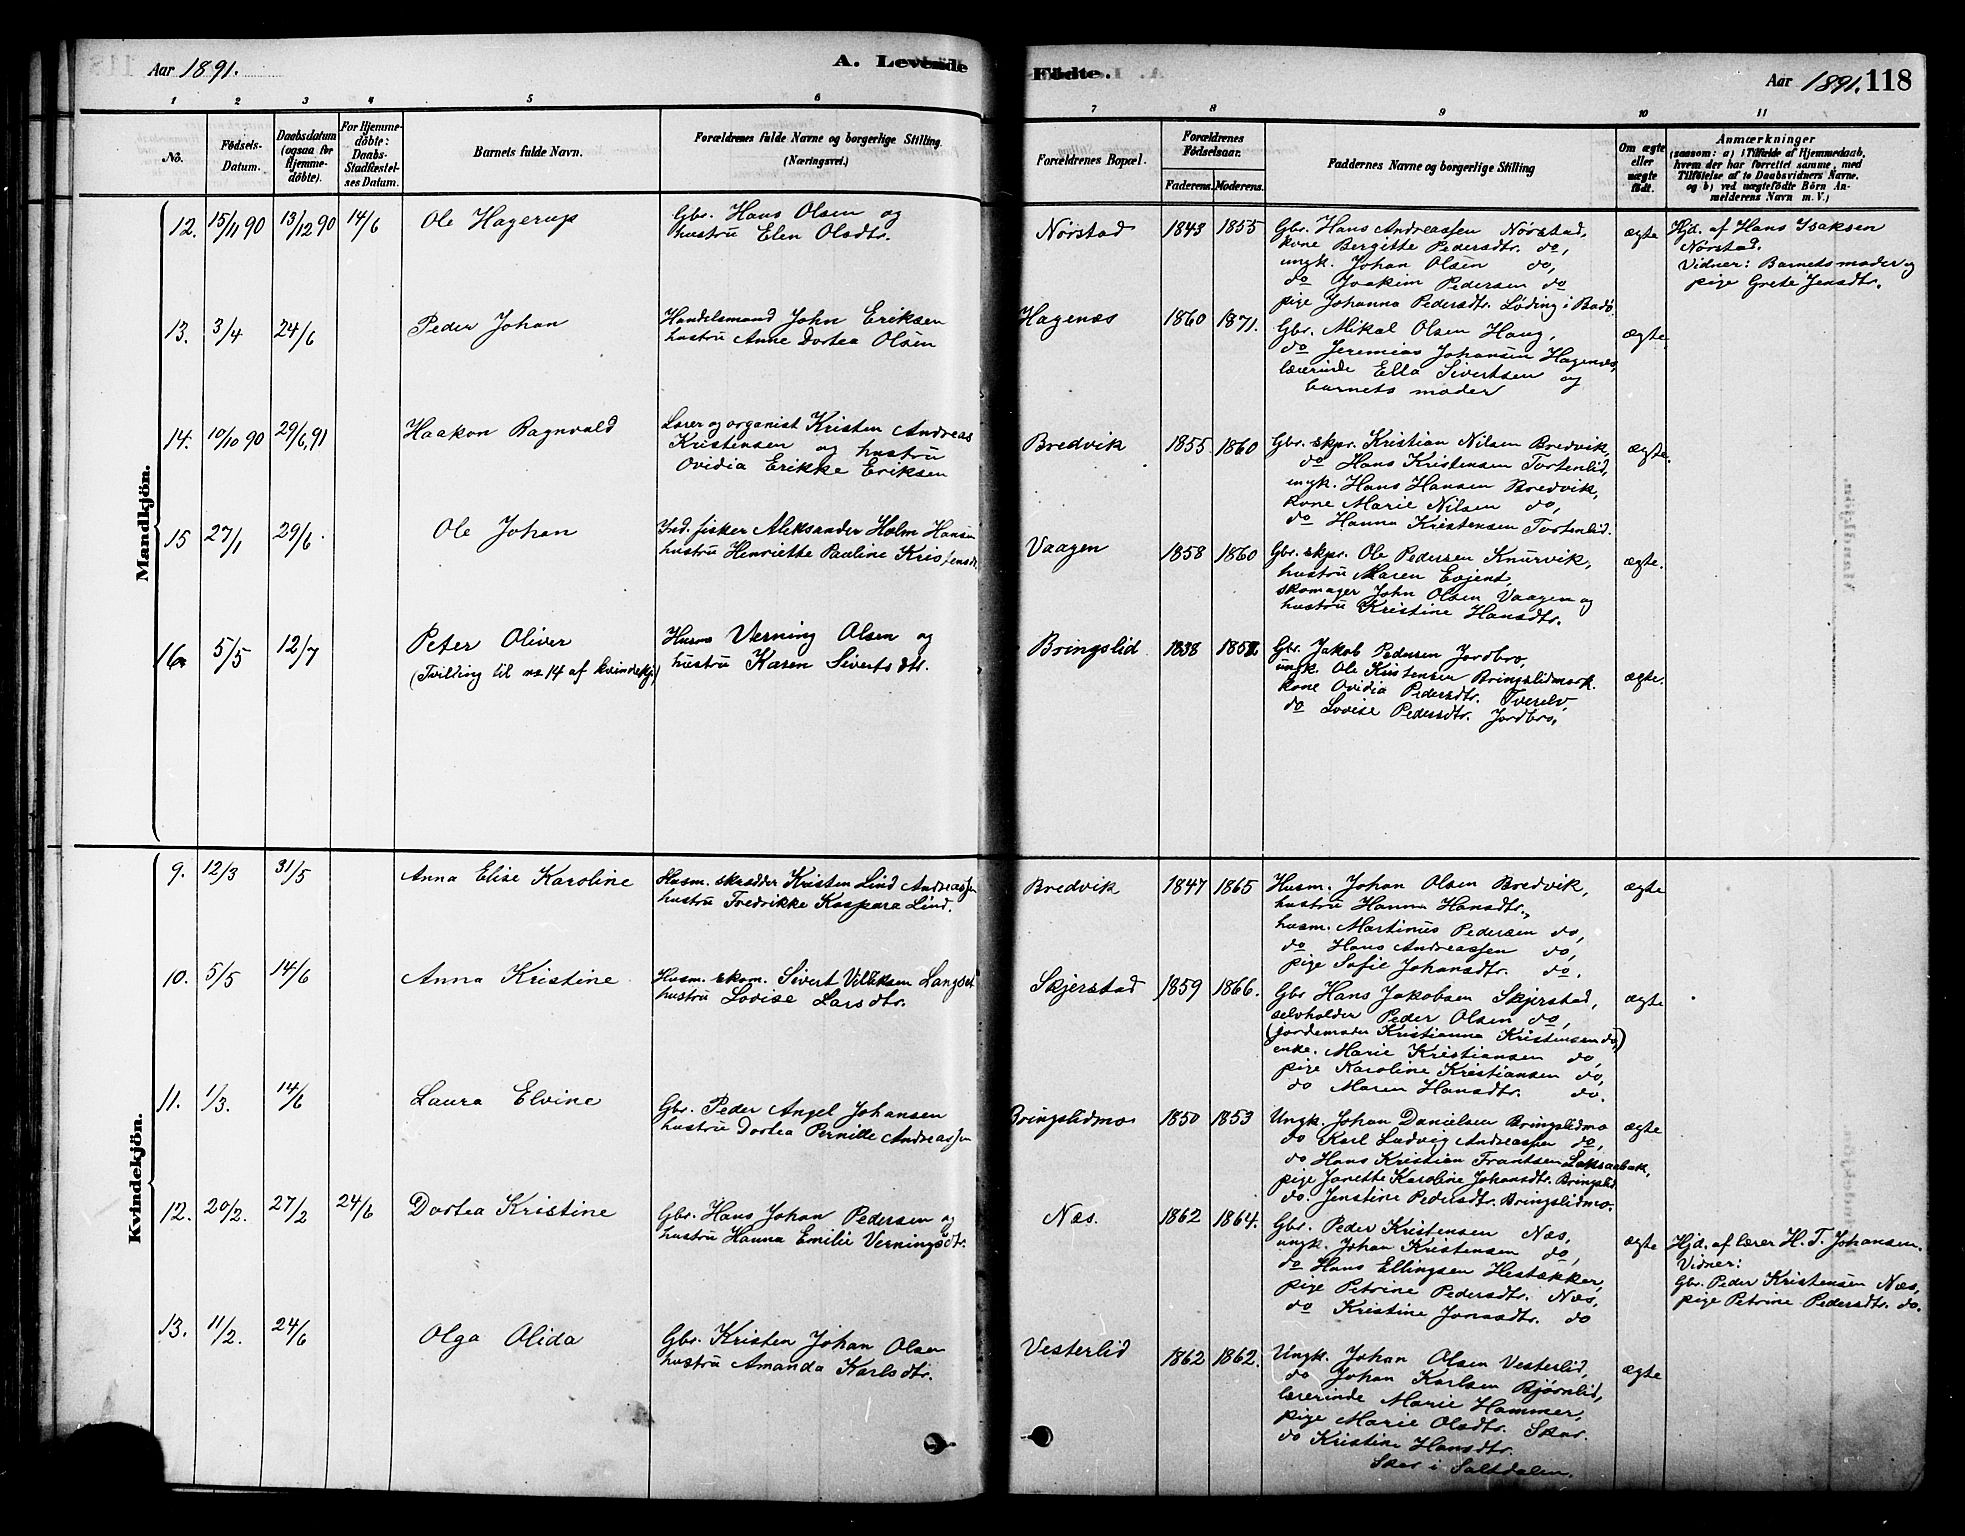 Aar 1891.
A. Levende
Fødte.
Aar 1891. 118
1 2 3 4 5 6 7 8 9 10 11
No.
Fødsels-
Datum.
Daabsdatum
(ogsaa for
Hjemme-
døbte).
For Hjemme-
døbte:
Daabs-
Stadfæstel-
ses Datum.
Barnets fulde Navn.
Forældrenes fulde Navne og borgerlige Stilling
(Næringsvei.)
Forældrenes Bopæl.
Forældrenes
Fødselsaar.
Faderens. Moderens.
Faddernes Navne og borgerlige Stilling
Om ægte
eller
uægte
født.
Anmærkninger
(saasom: a) i Tilfælde af Hjemmedaab,
hvem der har forrettet samme, med
Tilføielse af to Daabsvidners Navne.
og b) ved uægtefødte Børn An-
melderens Navn m. V.)
Mandkjön.
12. 15/11 90 13/12 90 14/6 Ole Hagerup
Gbr. Hans Olsen og
hustru Elen Olsdtr.
Nørstad 1843 1855
Gbr. Hans Andreassen Nørstad,
kone Bergitte Pedersdtr. do,
ungk. Johan Olsen do,
do Joakim Pedersen do
pige Johanna Pedersdtr. Løding i Bodø.
ægte
Hjd. af Hans Isaksen
Nørstad.
Vidner: Barnets moder og
pige Grete Jensdtr.
13. 3/4 24/6 Peder Johan
Handelsmand John Eriksen
hustru Anne Dortea Olsen
Hagenæs 1860 1871.
Gbr. Mikal Olsen Haug,
do Jeremias Johansen Hagenæs,
lærerinde Ella Sivertsen og
barnets moder
ægte.
14. 10/10 90 29/6 91 Haakon Ragnvald
Lærer og organist Kristen Andreas
Kristensen og hustru
Ovidia Erikke Eriksen
Bredvik 1855 1860
Gbr. skpr. Kristian Nilsen Bredvik,
do Hans Kristensen Tortenlid,
ungk. Hans Hansen Bredvik,
kone Marie Nilsen do,
do Hanna Kristensen Tortenlid.
ægte.
15 27/1 29/6. Ole Johan
Ind. fisker Aleksander Holm Hansen
hustru Henriette Pauline Kristensdt.
Vaagen 1858 1860
Gbr. skpr. Ole Pedersen Knurvik,
hustru Maren Evjent,
skomager John Olsen Vaagen og
hustru Kristine Hansdtr.
ægte.
16. 5/5 12/7 Peter Oliver
(Tvilling til no 14 af kvindekj.)
Husm Verning Olsen og
hustru Karen Sivertsdtr.
Bringslid 1838
Gbr. Jakob Pedersen Jordbro,
ungk. Ole Kristensen Bringslidmark.
kone Ovidia Pedersdtr. Tverelv,
do Lovise Pedersdtr. Jordbro,
ægte.
Kvindekjön.
9. 12/3 31/5 Anna Elise Karoline
Husm. skrædder Kristen Lind Andreassen
hustru Fredrikke Kaspara Lind.
Bredvik 1847 1865
Husm. Johan Olsen Bredvik,
hustru Hanna Hansdtr.,
husm. Martinus Pedersen do,
do Hans Andreassen do,
pige Sofie Johansdtr. do.
ægte
10. 5/5 14/6 Anna Kristine
Husm. skom. Sivert Villiksen Langset
hustru Lovise Larsdtr.
Skjerstad 1859 1866.
Gbr Hans Jakobsen Skjerstad,
selvholder Peder Olsen do,
(jordemoder Kristianna Kristensen do,)
enke. Marie Kristiansen do,
pige Karoline Kristiansen do,
do Maren Hansdtr. do.
ægte
11. 1/3. 14/6 Laura Elvine
Gbr. Peder Angel Johansen
hustru Dortea Pernille Andreassen
Bringslidmo 1850 1853
Ungk. Johan Danielsen Bringslidmo
do Karl Ludvig Andreassen do,
do Hans Kristian Frantsen Laksaabak,
pige Janette Karoline Johansdtr. Bringslid
do. Jenstine Pedersdtr. Bringslidmo.
ægte
12. 20/2. 27/2 24/6 Dortea Kristine
Gbr. Hans Johan Pedersen og
hustru Hanna Emilie Verningsdtr.
Næs. 1862 1864.
Gbr. Peder Kristensen Næs,
ungk. Johan Kristensen do,
do Hans Ellingsen Hestækker,
pige Petrine Pedersdtr. Næs,
do Kristine Jonasdtr. do
ægte
Hjd. af lærer H. T. Johansen.
Vidner:
Gbr. Peder Kristensen Næs,
pige Petrine Pedersdtr. do.
13. 11/2. 24/6 Olga Olida
Gbr. Kristen Johan Olsen
hustru Amanda Karlsdtr.
Vesterlid 1862 1862.
Ungk. Johan Olsen Vesterlid,
do Johan Karlsen Bjørnlid,
lærerinde Marie Hammer,
pige Marie Olsdtr. Skar.
do Kristine Hansdtr.
Skar i Saltdalen.
ægte